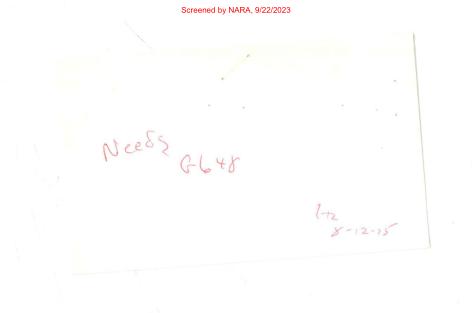 Screened by NARA, 9/22/2023
Needs
G-648
8-12-75